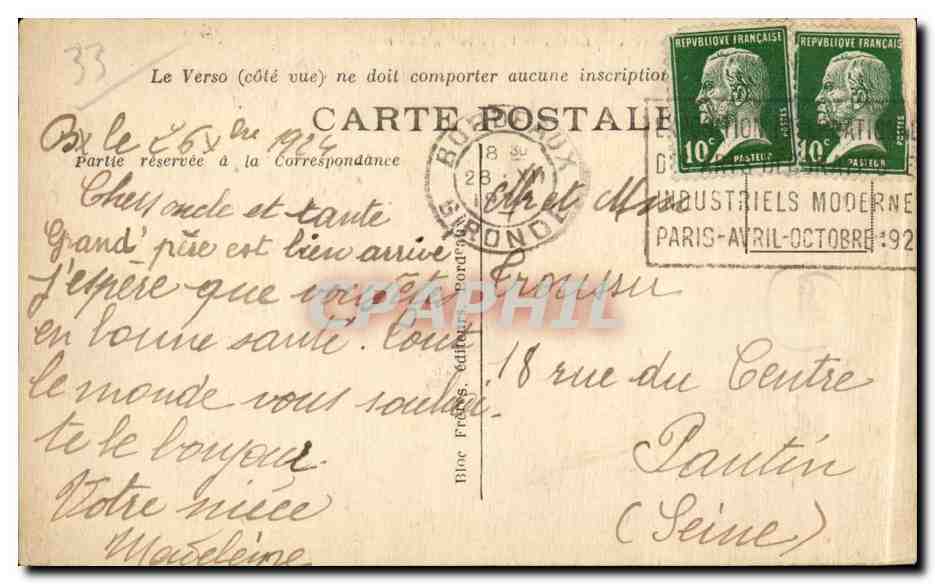 33
Le Verso (côté vue) ne doit comporter aucune inscription
CARTE POSTALE
Bx le 26 Xbre 1924
Partie réservée à la Correspondance
Cher oncle et tante
Grand' père est bien arrivé
J'espère que vous êtes
en bonne santé. Tout
le monde vous souhai-
te le bonjour.
Votre nièce
Madeleine
Bloc Frères, éditeurs, Bordeaux
REPVBLIQUE FRANÇAISE
10c
POSTES
PASTEUR
REPVBLIQUE FRANÇAISE
10c
POSTES
PASTEUR
BORDEAUX
18 30
28 XII
GIRONDE
INDUSTRIELS MODERNE
PARIS-AVRIL-OCTOBRE 192
Mr et Mme
Troussu
18 rue du Centre
Pantin
(Seine)
CPAPHIL